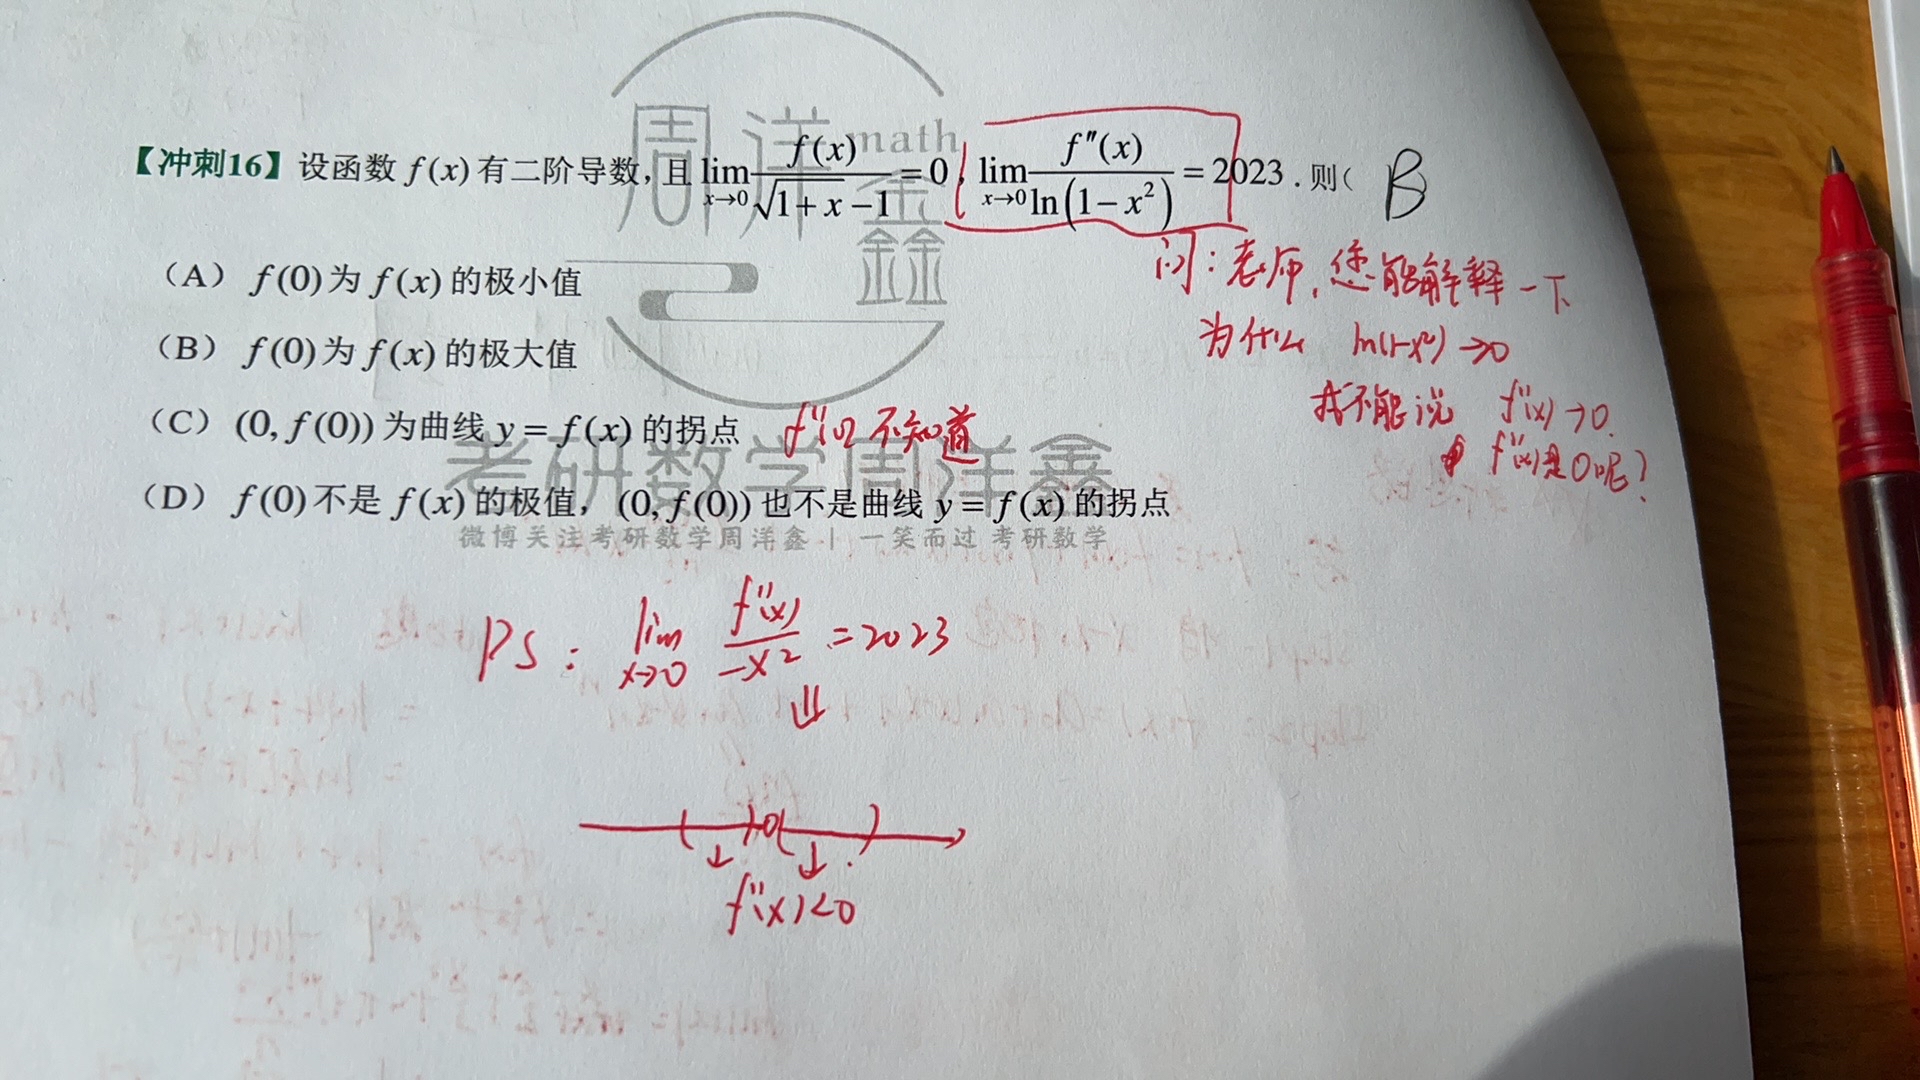 周洋鑫
math
【冲刺16】设函数 f(x) 有二阶导数, 且 lim_{x→0} f(x)/(√(1+x) −1) = 0, lim_{x→0} f″(x)/ln(1−x²) = 2023. 则( B
(A) f(0)为 f(x) 的极小值
(B) f(0)为 f(x) 的极大值
(C) (0, f(0)) 为曲线 y = f(x) 的拐点
(D) f(0) 不是 f(x) 的极值, (0, f(0)) 也不是曲线 y = f(x) 的拐点
问: 老师, 您能解释一下
为什么 ln(1-x²) → 0
我不能说 f″(x) → 0.
f″(x)是0呢?
不知道
考研数学周洋鑫
微博关注考研数学周洋鑫 | 一笑而过 考研数学
PS: lim_{x→0} f″(x)/−x² = 2023
⇓
0
↓ ↓
f″(x)<0